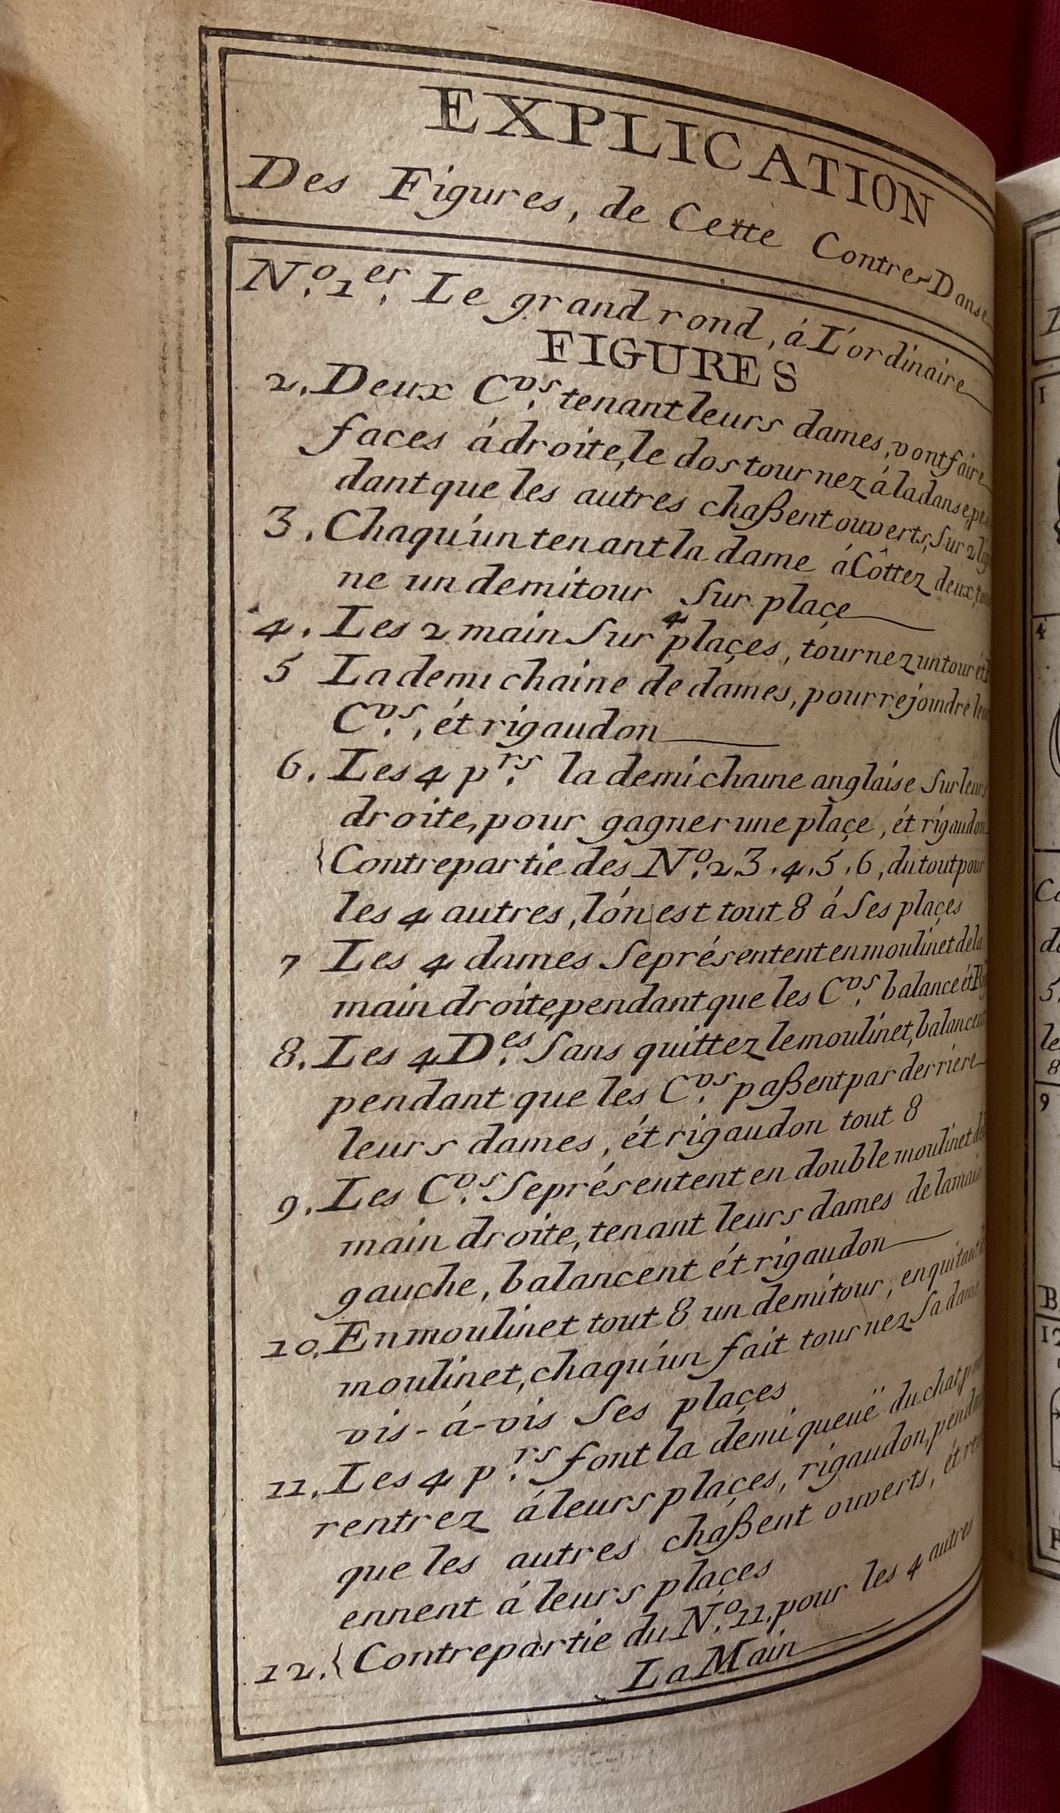 EXPLICATION
Des Figures, de Cette Contre-Danse
N.º 1.er Le grand rond, á L'ordinaire
FIGURES
2. Deux C.vrs tenant leurs dames, vont faire
faces á droite, le dos tournez á la danse, pen
dant que les autres chaßent ouverts, sur 2
3. Chaqu'un tenant la dame á Côttez deux,
ne un demi tour sur plaçe
4. Les 2 main sur 4 plaçes, tournez un tour
5 La demi chaine de dámes, pour rejoindre
C.vrs, ét rigaudon
6. Les 4 p.rs la demi chaine anglaise sur leurs
droite, pour gagner une plaçe, ét rigaudon
{Contrepartie des N.º 2.3.4.5.6, du tout pour
les 4 autres, lón est tout 8 á ses plaçes
7 Les 4 dames se présentent en moulinet de la
main droite, pendant que les C.vrs balance ét
8. Les 4 D.es sans quittez le moulinet, balancent
pendant que les C.vrs paßent par derriere
leurs dames, ét rigaudon tout 8
9. Les C.vrs se présentent en double moulinet de
main droite, tenant leurs dames de la main
gauche, balancent ét rigaudon
10. En moulinet tout 8 un demi tour, en quitant
moulinet, chaqu'un fait tournez sa dame
vis-á-vis ses plaçes
11. Les 4 p.rs font la demi queuë du chat,
rentrez á leurs plaçes, rigaudon, pendant
que les autres chaßent ouverts, ét
ennent á leurs plaçes
12. {Contrepartie du N.º 11, pour les 4 autres
La Main
1
4
5,
8
9
B
12